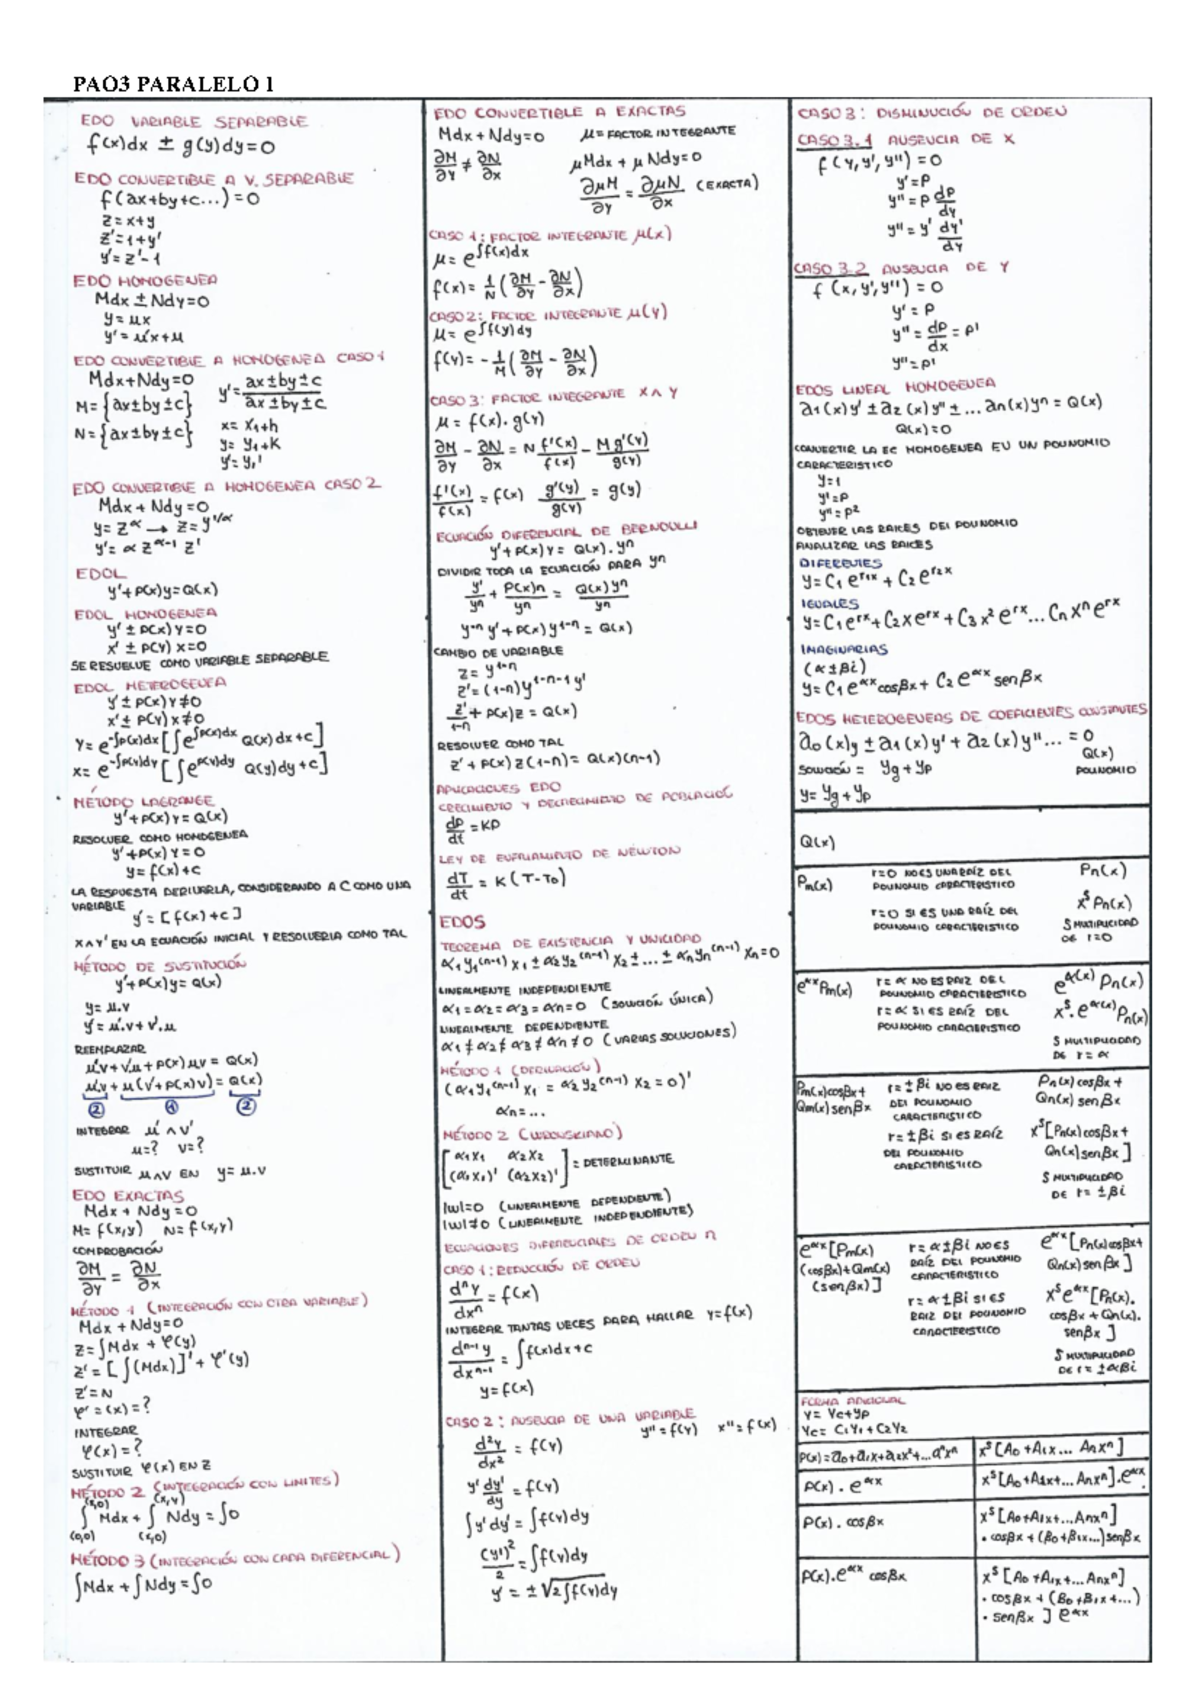 PAO3 PARALELO 1
EDO VARIABLE SEPARABLE
f(x)dx ± g(y)dy=0
EDO CONVERTIBLE A V. SEPARABLE
f(ax+by+c...)=0
z=x+y
z'=1+y'
y'=z'-1
EDO HOMOGENEA
Mdx ± Ndy=0
y=ux
y'=u'x+u
EDO CONVERTIBLE A HOMOGENEA CASO 1
Mdx+Ndy=0
M={ax±by±c}
N={ax±by±c}
y'= (ax±by±c)/(ax±by±c)
x= x₁+h
y= y₁+K
y'= y₁'
EDO CONVERTIBLE A HOMOGENEA CASO 2
Mdx + Ndy=0
y=z^α → z=y^(1/α)
y'= α z^(α-1) z'
EDOL
y'+p(x)y=Q(x)
EDOL HOMOGENEA
y' ± p(x)y=0
x' ± p(y)x=0
SE RESUELVE COMO VARIABLE SEPARABLE
EDOL HETEROGENEA
y' ± p(x)y≠0
x' ± p(y)x≠0
y= e^(-∫p(x)dx) [∫e^(∫p(x)dx) Q(x)dx+c]
x= e^(-∫p(y)dy) [∫e^(p(y)dy) Q(y)dy+c]
MÉTODO LAGRANGE
y'+p(x)y=Q(x)
RESOLVER COMO HOMOGENEA
y'+p(x)y=0
y=f(x)+c
LA RESPUESTA DERIVARLA, CONSIDERANDO A C COMO UNA
VARIABLE
y'=[f(x)+c]
x∧y' EN LA ECUACIÓN INICIAL Y RESOLVERLA COMO TAL
MÉTODO DE SUSTITUCIÓN
y'+p(x)y=Q(x)
y= u.v
y'= u'.v+v'.u
REEMPLAZAR
u'.v+v'.u+p(x)uv=Q(x)
u'.v+u(v'+p(x)v)=Q(x)
② ① ②
INTEGRAR u' ∧ v'
u=? v=?
SUSTITUIR u∧v EN y= u.v
EDO EXACTAS
Mdx + Ndy=0
M= f(x,y) N= f(x,y)
COMPROBACIÓN
∂M/∂y = ∂N/∂x
MÉTODO 1 (INTEGRACIÓN CON OTRA VARIABLE)
Mdx + Ndy=0
z=∫Mdx + φ(y)
z'=[∫(Mdx)]'+φ'(y)
z'=N
φ'=(x)=?
INTEGRAR
φ(x)=?
SUSTITUIR φ(x) EN z
MÉTODO 2 (INTEGRACIÓN CON LIMITES)
(x,0) (x,y)
∫Mdx+∫Ndy=∫0
(0,0) (x,0)
MÉTODO 3 (INTEGRACIÓN CON CADA DIFERENCIAL)
∫Mdx+∫Ndy=∫0
EDO CONVERTIBLE A EXACTAS
Mdx+Ndy=0 μ= FACTOR INTEGRANTE
∂M/∂y ≠ ∂N/∂x μMdx + μNdy=0
∂μM/∂y = ∂μN/∂x (EXACTA)
CASO 1: FACTOR INTEGRANTE μ(x)
μ= e^(∫f(x)dx)
f(x)= 1/N (∂M/∂y - ∂N/∂x)
CASO 2: FACTOR INTEGRANTE μ(y)
μ= e^(∫f(y)dy)
f(y)= -1/M (∂M/∂y - ∂N/∂x)
CASO 3: FACTOR INTEGRANTE x∧y
μ= f(x).g(y)
∂M/∂y - ∂N/∂x = N f'(x)/f(x) - M g'(y)/g(y)
f'(x)/f(x) = f(x) g'(y)/g(y) = g(y)
ECUACIÓN DIFERENCIAL DE BERNOULLI
y'+p(x)y= Q(x).yⁿ
DIVIDIR TODA LA ECUACIÓN PARA yⁿ
y'/yⁿ + p(x)n/yⁿ = Q(x)yⁿ/yⁿ
y⁻ⁿ y'+p(x)y^(1-n) = Q(x)
CAMBIO DE VARIABLE
z= y^(1-n)
z'=(1-n)y^(1-n-1) y'
z'/(1-n) + p(x)z=Q(x)
RESOLVER COMO TAL
z'+p(x)z(1-n)=Q(x)(n-1)
APLICACIONES EDO
CRECIMIENTO Y DECRECIMIENTO DE POBLACIÓN
dp/dt =Kp
LEY DE ENFRIAMIENTO DE NEWTON
dT/dt = K(T-T₀)
EDOS
TEOREMA DE EXISTENCIA Y UNICIDAD
α₁y₁^(n-1) x₁ ± α₂y₂^(n-1) x₂ ± ... ± αₙyₙ^(n-1) xₙ=0
LINEALMENTE INDEPENDIENTE
α₁=α₂=α₃=αₙ=0 (SOLUCIÓN ÚNICA)
LINEALMENTE DEPENDIENTE
α₁≠α₂≠α₃≠αₙ≠0 (VARIAS SOLUCIONES)
MÉTODO 1 (DERIVACIÓN)
(α₁y₁^(n-1) x₁ = α₂y₂^(n-1) x₂=0)'
αₙ=...
MÉTODO 2 (WRONSKIANO)
[α₁x₁ α₂x₂
(α₁x₁)' (α₂x₂)'] = DETERMINANTE
|w|=0 (LINEALMENTE DEPENDIENTE)
|w|≠0 (LINEALMENTE INDEPENDIENTE)
ECUACIONES DIFERENCIALES DE ORDEN n
CASO 1: REDUCCIÓN DE ORDEN
dⁿy/dxⁿ = f(x)
INTEGRAR TANTAS VECES PARA HALLAR y=f(x)
dⁿ⁻¹y/dxⁿ⁻¹ = ∫f(x)dx+c
y=f(x)
CASO 2: AUSENCIA DE UNA VARIABLE
y''=f(y) x''=f(x)
d²y/dx² = f(y)
y' dy'/dy = f(y)
∫y'dy'=∫f(y)dy
(y')²/2 = ∫f(y)dy
y' = ±√2∫f(y)dy
CASO 3: DISMINUCIÓN DE ORDEN
CASO 3.1 AUSENCIA DE X
f(y,y',y'')=0
y'=p
y''=p dp/dy
y''=y' dy'/dy
CASO 3.2 AUSENCIA DE Y
f(x,y',y'')=0
y'=p
y''=dp/dx=p'
y''=p'
EDOS LINEAL HOMOGENEA
a₁(x)y' ± a₂(x)y'' ± ...aₙ(x)yⁿ = Q(x)
Q(x)=0
CONVERTIR LA EC HOMOGENEA EN UN POLINOMIO
CARACTERISTICO
y=1
y'=p
y''=p²
OBTENER LAS RAICES DEL POLINOMIO
ANALIZAR LAS RAICES
DIFERENTES
y=C₁e^(r₁x)+C₂e^(r₂x)
IGUALES
y=C₁e^(rx)+C₂xe^(rx)+C₃x²e^(rx)...Cₙxⁿe^(rx)
IMAGINARIAS
(α±βi)
y=C₁e^(αx)cosβx+C₂e^(αx)senβx
EDOS HETEROGENEAS DE COEFICIENTES CONSTANTES
a₀(x)y ± a₁(x)y'+a₂(x)y''...=0
Q(x)
SOLUCIÓN = yg+yp POLINOMIO
y=yg+yp
Q(x)
Pm(x) r=0 NO ES UNA RAÍZ DEL POLINOMIO CARACTERISTICO Pn(x)
r=0 SI ES UNA RAÍZ DEL POLINOMIO CARACTERISTICO x^s Pn(x)
S MULTIPLICIDAD DE r=0
e^(αx)Pm(x) r=α NO ES RAIZ DEL POLINOMIO CARACTERISTICO e^(α(x)) Pn(x)
r=α SI ES RAÍZ DEL POLINOMIO CARACTERISTICO x^s.e^(α(x))Pn(x)
S MULTIPLICIDAD DE r=α
Pm(x)cosβx+
Qm(x)senβx
r=±βi NO ES RAIZ DEL POLINOMIO CARACTERISTICO
Pn(x)cosβx+
Qn(x)senβx
r=±βi SI ES RAÍZ DEL POLINOMIO CARACTERISTICO
x^s[Pn(x)cosβx+
Qn(x)senβx]
S MULTIPLICIDAD DE r=±βi
e^(αx)[Pm(x)
(cosβx)+Qm(x)
(senβx)]
r=α±βi NO ES RAÍZ DEL POLINOMIO CARACTERISTICO
e^(αx)[Pn(x)cosβx+
Qn(x)senβx]
r=α±βi SI ES RAIZ DEL POLINOMIO CARACTERISTICO
x^s e^(αx)[Pn(x).
cosβx+Qn(x).
senβx]
S MULTIPLICIDAD
DE r=±αβi
FORMA ADICIONAL
y=yc+yp
yc=C₁y₁+C₂y₂
p(x)=a₀+a₁x+a₂x²+...aⁿxⁿ x^s[A₀+A₁x...Anxⁿ]
p(x).e^(αx) x^s[A₀+A₁x+...Anxⁿ].e^(αx)
p(x).cosβx x^s[A₀+A₁x+...Anxⁿ]
.cosβx+(B₀+B₁x...)senβx
p(x).e^(αx)cosβx x^s[A₀+A₁x+...Anxⁿ]
.cosβx+(B₀+B₁x+...)
.senβx]e^(αx)